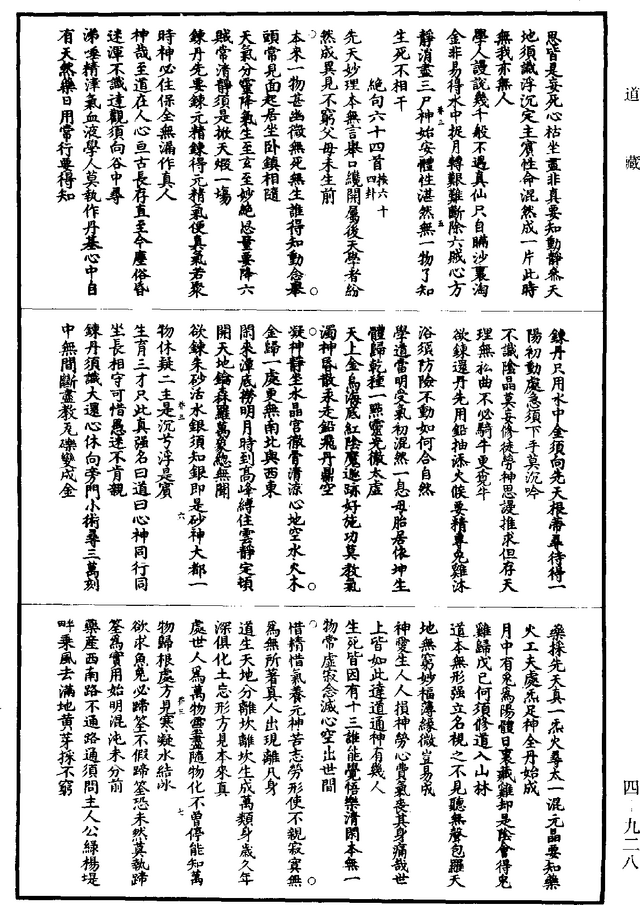 道藏
思皆是妄死心枯坐盡非真要知動靜無天
地須識浮沉定主賓性命混然成一片此時
無我亦無人
學人謾說幾千般不遇真仙只自瞞沙裏淘
金非易得水中捉月轉艱難斷除六賊心方
靜消盡三尸神始安體性湛然無一物了知
生死不相干
絕句六十四首按六十四卦
先天妙理本無言舉口纔開屬後天學者紛
然成異見不窮父母未生前
本來一物甚幽微無死無生誰得知動念舉
頭常見面起居坐卧鎮相隨
天氣分靈降氣生至玄至妙絕思量要降六
賊常清靜須是掀天煅一場
鍊丹先要鍊元精鍊得元精氣便真氣若聚
時神必住保全無漏作真人
神哉至道在人心亘古長存直至今塵俗昏
迷渾不識達觀須向谷中尋
涕唾精津氣血液學人莫執作丹基心中自
有天然藥日用常行要得知
鍊丹只用水中金須向先天根蒂尋待得一
陽初動處急須下手莫沉吟
不識陰晶莫妄修徒勞神思謾推求但存天
理無私曲不必騎牛更覓牛
欲鍊還丹先用鉛抽添火候要精專兔雞沐
浴須防險不動如何合自然
學道當明受氣初混然一息母胎居依坤生
體歸乾種一點靈光徹太虛
天上金烏海底紅陰魔遁跡好施功莫教氣
濁神昏散汞走鉛飛丹鼎空
凝神靜坐水晶宮徹骨清涼心地空水火木
金歸一處更無南北與西東
閑來潭底撈明月時到高峰縛住雲靜定頓
開天地鑰森羅萬象總無聞
欲鍊朱砂活水銀須知銀即是砂神大都一
物休疑二主是沉兮浮是賓
生育三才只此真強名曰道曰心神同行同
坐長相守可惜愚迷不肯親
鍊丹須識大還心休向旁門小術尋三萬刻
中無間斷盡教瓦礫變成金
藥採先天真一炁火尋太一混元晶要知藥
火工夫處炁足神全丹始成
月中有兔為陽體日裏藏雞却是陰會得兔
雞歸戊己何須修道入山林
道本無形强立名視之不見聽無聲包羅天
地無窮妙福薄緣微豈易成
神愛生人人損神勞心費氣喪其身痛哉世
上皆如此達道通神有幾人
生死皆因有十三誰能覺悟樂清閑本無一
物常虛寂念滅心空出世間
惜精惜氣養元神苦志勞形使不親寂寞無
為無所著真人出現離凡身
道生天地分離坎離坎生成萬類身歲久年
深俱化土忘形方見本來真
處世人為萬物靈盡隨物化不曾停能知萬
物歸根處方見寒凝水結冰
欲求魚兔必蹄筌不假蹄筌恐未然莫執蹄
筌為實用始明混沌未分前
藥產西南路不通路通須問主人公綠楊堤
畔乘風去滿地黃芽採不窮
四 - 九二八